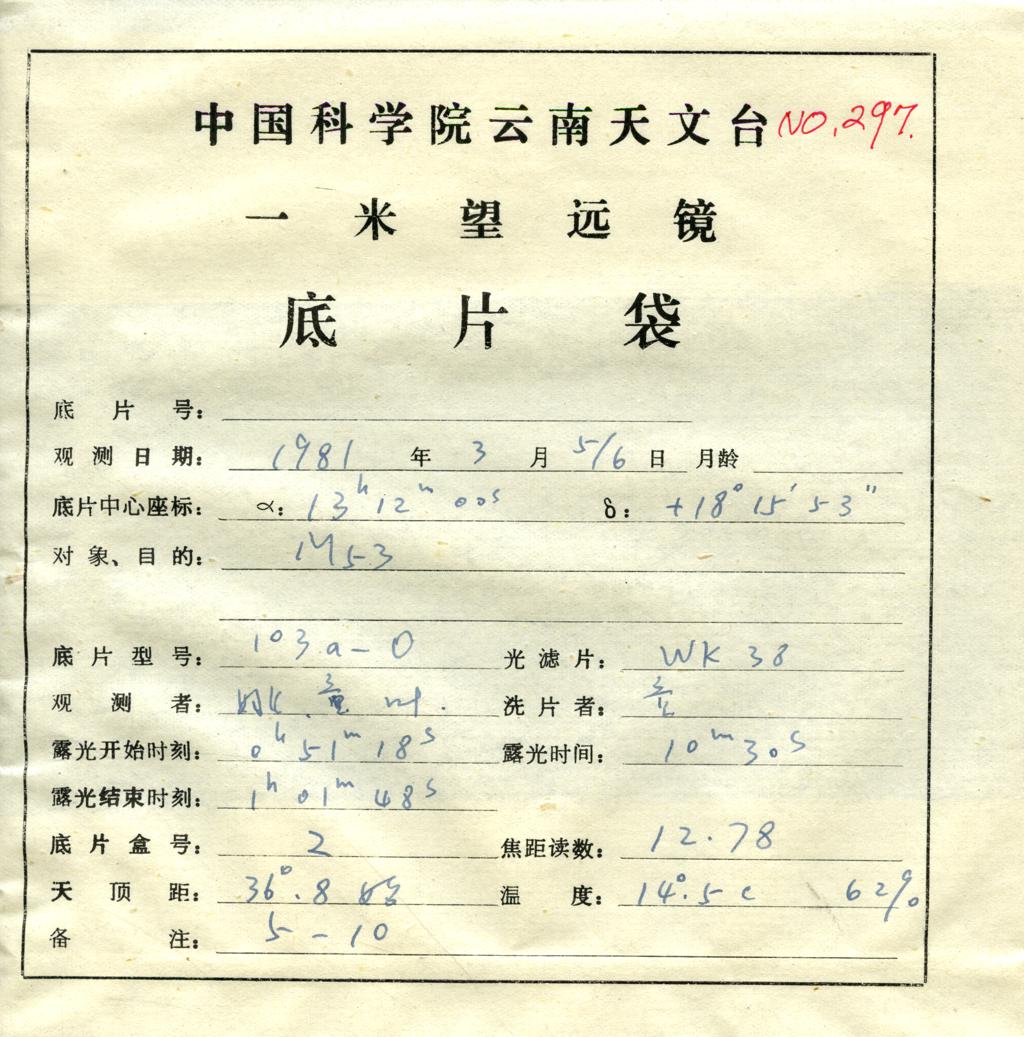 中国科学院云南天文台 NO.297.
一米望远镜
底片袋
底片号:
观测日期: 1981 年 3 月 5/6 日 月龄
底片中心座标: α: 13h 12m 00s δ: +18° 15′ 53″
对象、目的: M53
底片型号: 103a-O 光滤片: WK 38
观测者: 洗片者:
露光开始时刻: 0h 51m 18s 露光时间: 10m 30s
露光结束时刻: 1h 01m 48s
底片盒号: 2 焦距读数: 12.78
天顶距: 36°.8 始 温度: 14°.5 c 62%
备注: 5-10